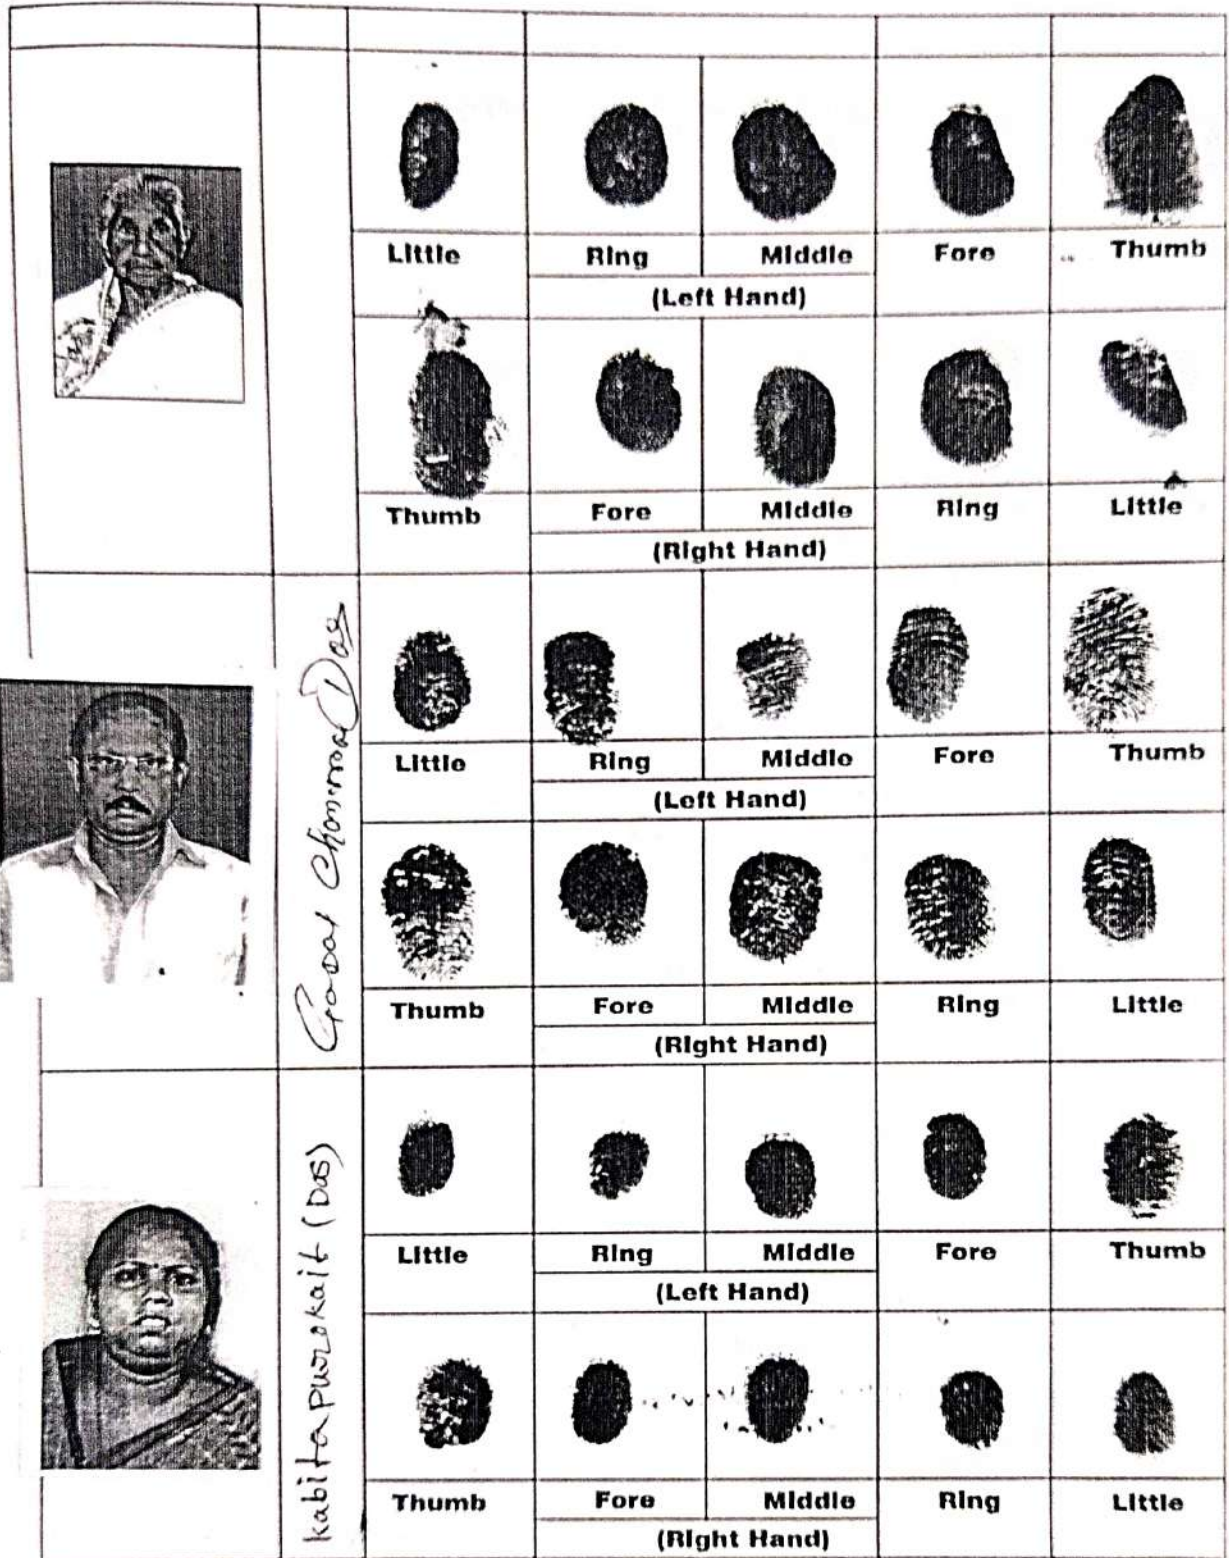 Little Ring Middle Fore Thumb
(Left Hand)
Thumb Fore Middle Ring Little
(Right Hand)
Das
Little Ring Middle Fore Thumb
(Left Hand)
Thumb Fore Middle Ring Little
(Right Hand)
kabita purokait (Das)
Little Ring Middle Fore Thumb
(Left Hand)
Thumb Fore Middle Ring Little
(Right Hand)